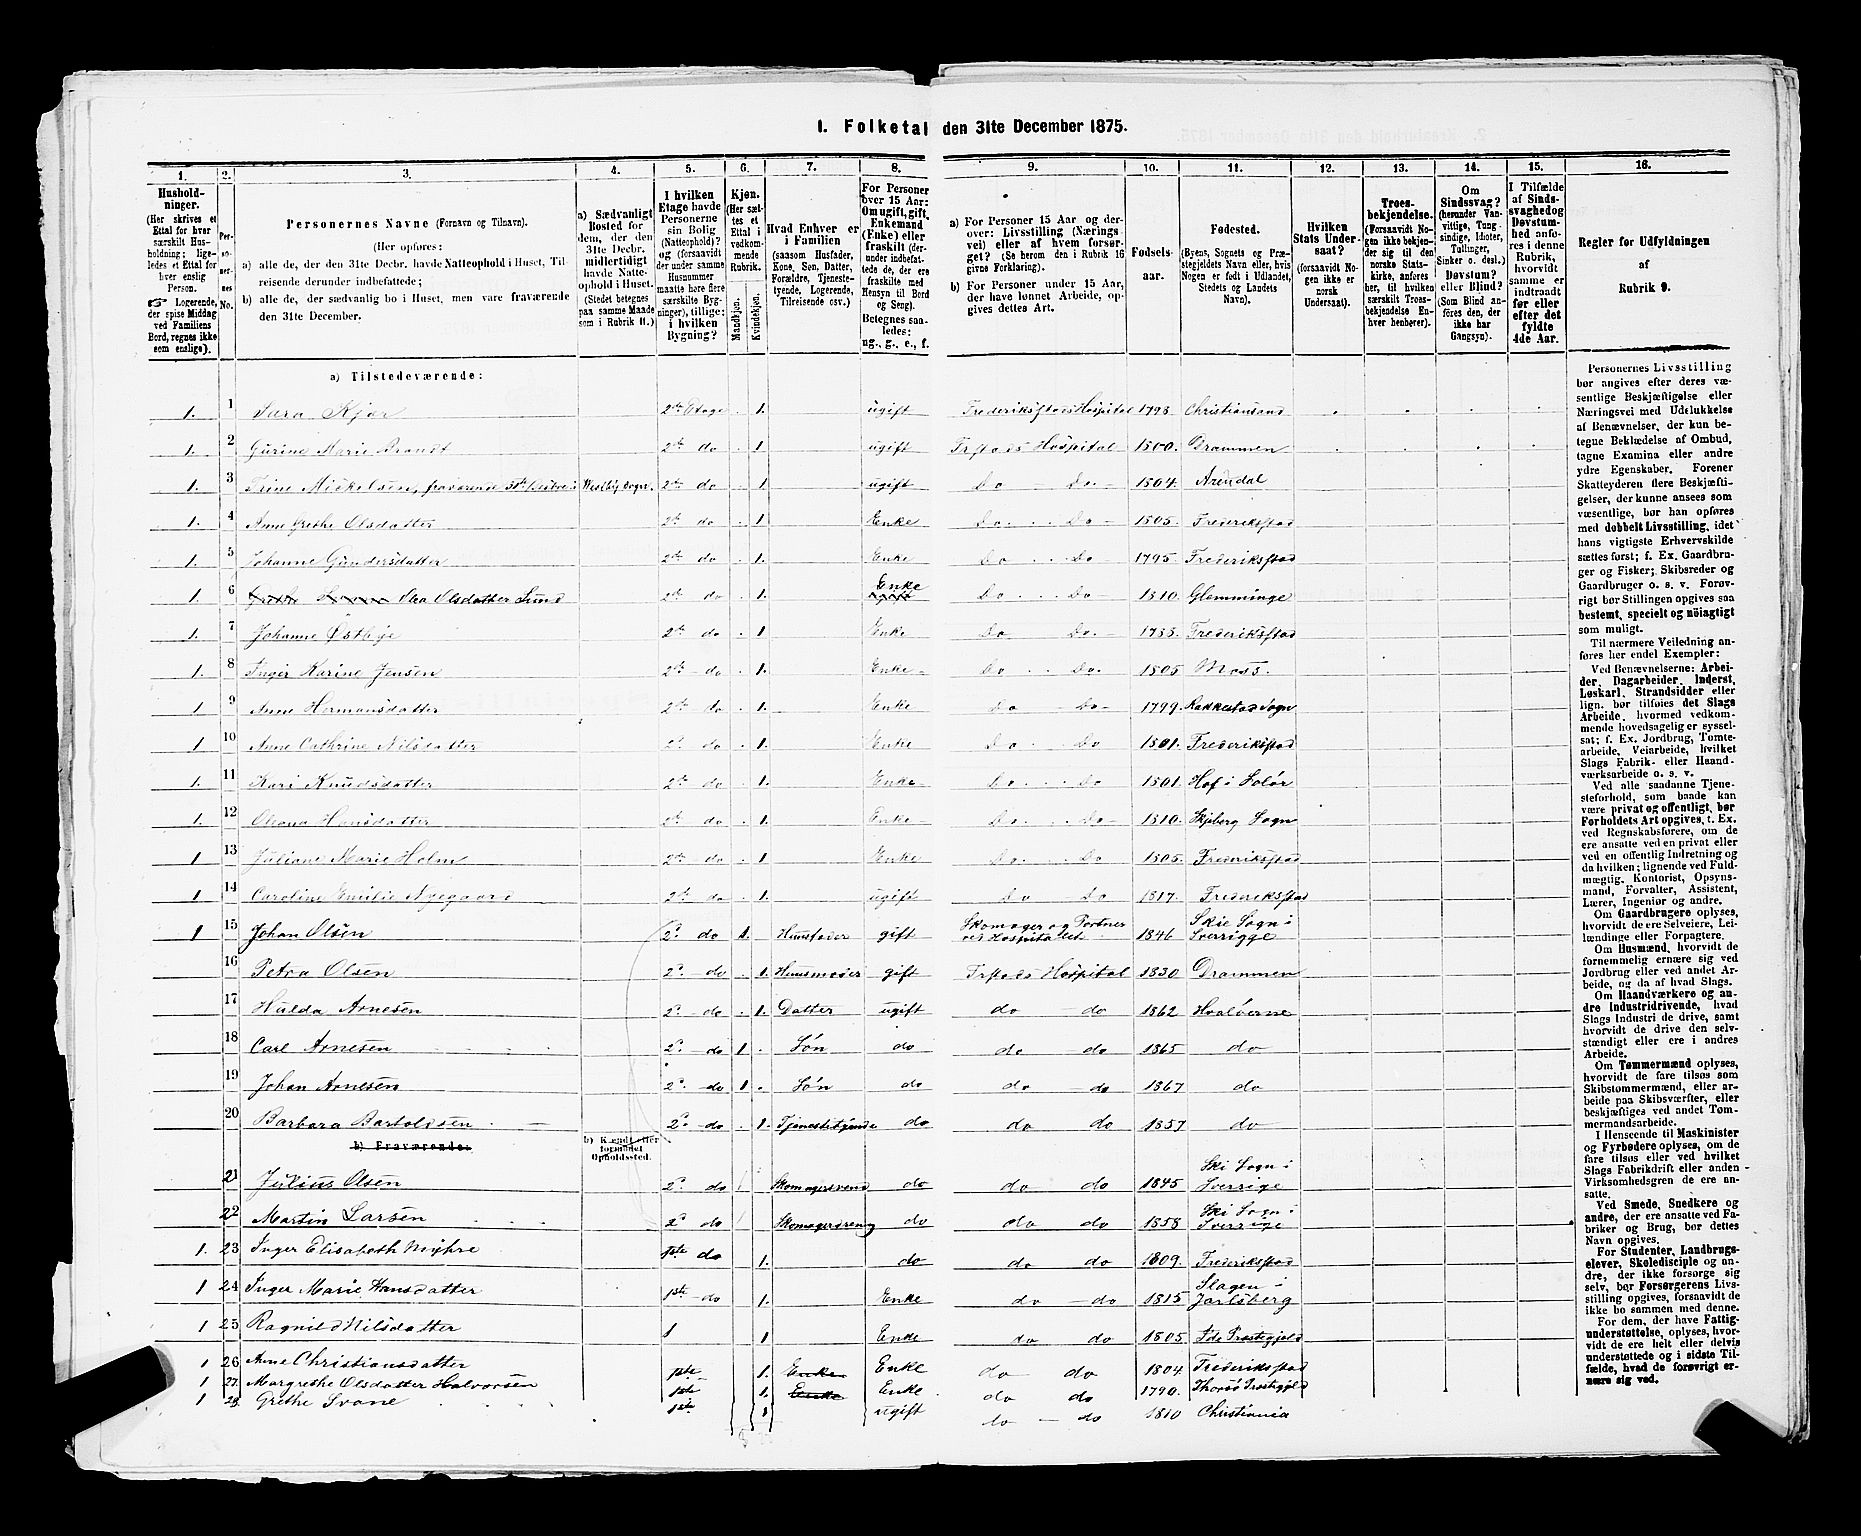 1. Folketal den 31te December 1875.
1. 2. 3. 4. 5. 6. 7. 8. 9. 10. 11. 12. 13. 14. 15. 16.
Hushold-
ninger.
(Her skrives et
Ettal for hver
særskilt Hus-
holdning; lige-
ledes et Ettal for
hver enslig
Person.
☞ Logerende,
der spise Middag
ved Familiens
Bord, regnes ikke
som enslige).
Per-
so-
ner-
nes
No.
Personernes Navne (Fornavn og Tilnavn).
(Her opføres:
a) alle de, der den 31te Decbr. havde Natteophold i Huset, Til-
reisende derunder indbefattede;
b) alle de, der sædvanlig bo i Huset, men vare fraværende
den 31te December.
a) Sædvanligt
Bosted for
dem, der den
31te Decbr.
midlertidigt
havde Natte-
ophold i Huset.
(Stedet betegnes
paa samme Maade
som i Rubrik 11.)
I hvilken
Etage havde
Personerne
sin Bolig
(Natteophold)?
og (forsaavidt
der under samme
Husnummer
maatte høre flere
særskilte Byg-
ninger), tillige:
i hvilken
Bygning?
Kjøn.
(Her sæt-
tes et
Ettal i
vedkom-
mende
Rubrik.
Mandkjøn.
Kvindekjøn.
Hvad Enhver er
i Familien
(saasom Husfader,
Kone, Søn, Datter,
Forældre, Tjeneste-
tyende, Logerende,
Tilreisende osv.)
For Personer
over 15 Aar:
Om ugift, gift,
Enkemand
(Enke) eller
fraskilt (der-
under indbefat-
tede de, der ere
fraskilte med
Hensyn til Bord
og Seng).
Betegnes saa-
ledes:
ug., g., e., f.
a) For Personer 15 Aar og der-
over: Livsstilling (Nærings-
vei) eller af hvem forsør-
get? (Se herom den i Rubrik 16
givne Forklaring).
b) For Personer under 15 Aar,
der have lønnet Arbeide, op-
gives dettes Art.
Fødsels-
aar.
Fødested.
(Byens, Sognets og Præ-
stegjeldets Navn eller, hvis
Nogen er født i Udlandet,
Stedets og Landets
Navn).
Hvilken
Stats Under-
saat?
(forsaavidt No-
gen ikke er
norsk
Undersaat).
Troes-
bekjendelse.
(Forsaavidt No-
gen ikke bekjen-
der sig til den
norske Stats-
kirke, anføres
her, til hvilken
særskilt Troes-
bekjendelse En-
hver henhører).
Om
Sindssvag?
(herunder Van-
vittige, Tung-
sindige, Idioter,
Tullinger,
Sinker o. desl.)
Døvstum?
eller Blind?
(Som Blind an-
føres den, der
ikke har
Gangsyn).
I Tilfælde
af Sinds-
svaghed og
Døvstum-
hed anfø-
res i denne
Rubrik,
hvorvidt
samme er
indtraadt
før eller
efter det
fyldte
4de Aar.
Regler for Udfyldningen
af
Rubrik 9.
a) Tilstedeværende:
1. 1 Sara Kjær 2den Etage . 1. ugift Frederikstads Hospital 1793 Christiansand
1. 2 Gurine Marie Brandt 2den do . 1 ugift Frstads Hospital 1800. Drammen
1. 3 Trine Mickelsen, fraværende Westby Sogn. 2den do . 1 ugift Do Do 1804. Arendal
1. 4 Anne Grethe Olsdatter 2den do . 1 Enke Do Do 1805. Frederikstad
1. 5 Johanne Gundersdatter 2den do . 1. Enke Do Do 1795. Frederikstad
1. 6 Olea Olsdatter Lund 2den do . 1. Enke Do Do 1810. Glemminge
1. 7 Johanne Østbye 2den do . 1. Enke Do Do Frederikstad
1. 8 Inger Karine Jensen 2den do . 1. Enke Do Do 1805 Moss.
1. 9 Anne Hermansdatter 2den do . 1. Enke Do Do 1799. Rakkestad Sogn
1 10 Anne Cathrine Nilsdatter 2d do . 1. Enke Do Do 1801. Frederikstad
1. 11 Kari Knudsdatter 2den do . 1. Enke Do Do 1801. Hof i Solør
1. 12 Oleana Hansdatter 2den do . 1. Enke Do Do 1810. Skjeberg Sogn
1. 13 Juliane Marie Holm 2den do . 1 Enke Do Do 1805. Frederikstad
1 14 Caroline Emilie Nyegaard 2den do . 1. ugift Do Do 1817. Frederikstad
1 15 Johan Olsen 2d do 1. Husfader gift Skomager og Portner ved Hospitalet 1846 Skie Sogn i Sverrigge
16 Petra Olsen 2d do . 1. Huusmoder gift Frstads Hospital 1830 Drammen
17 Hulda Arnesen 2d do . 1. Datter ugift do do 1862 Hvaløerne
18 Carl Arnesen 2d do 1 . Søn do do do 1865 do
19 Johan Arnesen 2d do 1 . Søn do do do 1867 do
20 Barbara Bartoldsen 2d do . 1. Tjenestetyende do do do 1857 do
b) Fraværende:
b) Kjendt eller
formodet
Opholdssted.
21 Julius Olsen 2d do 1 Skomagersvend do do do 1845 Ski Sogn i Sverrige
22 Martin Larsen 2d do 1 Skomagerdreng do do do 1858 Ski Sogn i Sverrige
1. 23 Inger Elisabeth Myhre 1ste do 1. do do do 1809. Frederikstad
1 24 Inger Marie Hansdatter 1ste do 1. Enke do do 1815 Slagen i Jarlsberg
1 25 Ragnild Nilsdatter 1 1 Enke do do 1805. Præstegjeld
1 26 Anne Christiansdatter 1ste 1. Enke Enke do do 1804 Frederikstad
1 27. Margrethe Olsdatter Halvorsen 1ste 1. Enke Enke do do 1790. Thorsø Præstegjeld
1 28. Grethe Svane 1ste 1 ugift do do 1810 Christiania
Personernes Livsstilling
bør angives efter deres væ-
sentlige Beskjæftigelse eller
Næringsvei med Udelukkelse
af Benævnelser, der kun be-
tegne Beklædelse af Ombud,
tagne Examina eller andre
ydre Egenskaber. Forener
Skatteyderen flere Beskjæfti-
gelser, der kunne ansees som
væsentlige, bør han opføres
med dobbelt Livsstilling, idet
hans vigtigste Erhvervskilde
sættes først; f. Ex. Gaardbru-
ger og Fisker; Skibsreder og
Gaardbruger o. s. v. Forøv-
rigt bør Stillingen opgives saa
bestemt, specielt og nøiagtigt
som muligt.
Til nærmere Veiledning an-
føres her endel Exempler:
Ved Benævnelserne: Arbei-
der, Dagarbeider, Inderst,
Løskarl, Strandsidder eller
lign. bør tilføies det Slags
Arbeide, hvormed vedkom-
mende hovedsagelig er syssel-
sat; f. Ex. Jordbrug, Tomte-
arbeide, Veiarbeide, hvilket
Slags Fabrik- eller Haand-
værksarbeide o. s. v.
Ved alle saadanne Tjene-
steforhold, som baade kan
være privat og offentligt, bør
Forholdets Art opgives, t. Ex.
ved Regnskabsførere, om de
ere ansatte ved en privat eller
ved en offentlig Indretning og
da hvilken; lignende ved Fuld-
mægtig, Kontorist, Opsyns-
mand, Forvalter, Assistent,
Lærer, Ingeniør og andre.
Om Gaardbrugere oplyses,
hvorvidt de ere Selveiere, Lei-
lændinge eller Forpagtere.
Om Husmænd, hvorvidt de
fornemmelig ernære sig ved
Jordbrug eller ved andet Ar-
beide, og da af hvad Slags.
Om Haandværkere og an-
dre Industridrivende, hvad
Slags Industri de drive, samt
hvorvidt de drive den selv-
stændigt eller ere i andres
Arbeide.
Om Tømmermænd oplyses,
hvorvidt de fare tilsøs som
Skibstømmermænd, eller ar-
beide paa Skibsværfter, eller
beskjæftiges ved andet Tøm-
mermandsarbeide.
I Henseende til Maskinister
og Fyrbødere oplyses, om de
fare tilsøs eller ved hvilket
Slags Fabrikdrift eller anden
Virksomhedsgren de ere an-
satte.
Ved Smede, Snedkere og
andre, der ere ansatte ved Fa-
briker og Brug, bør dettes
Navn opgives.
For Studenter, Landbrugs-
elever, Skoledisciple og an-
dre, der ikke forsørge sig
selv, bør Forsørgerens Livs-
stilling opgives, forsaavidt de
ikke bo sammen med denne.
For dem, der have Fattig-
understøttelse, oplyses, hvor-
vidt de ere helt eller delvis
understøttede og i sidste Til-
fælde, hvad de forøvrigt er-
nære sig ved.